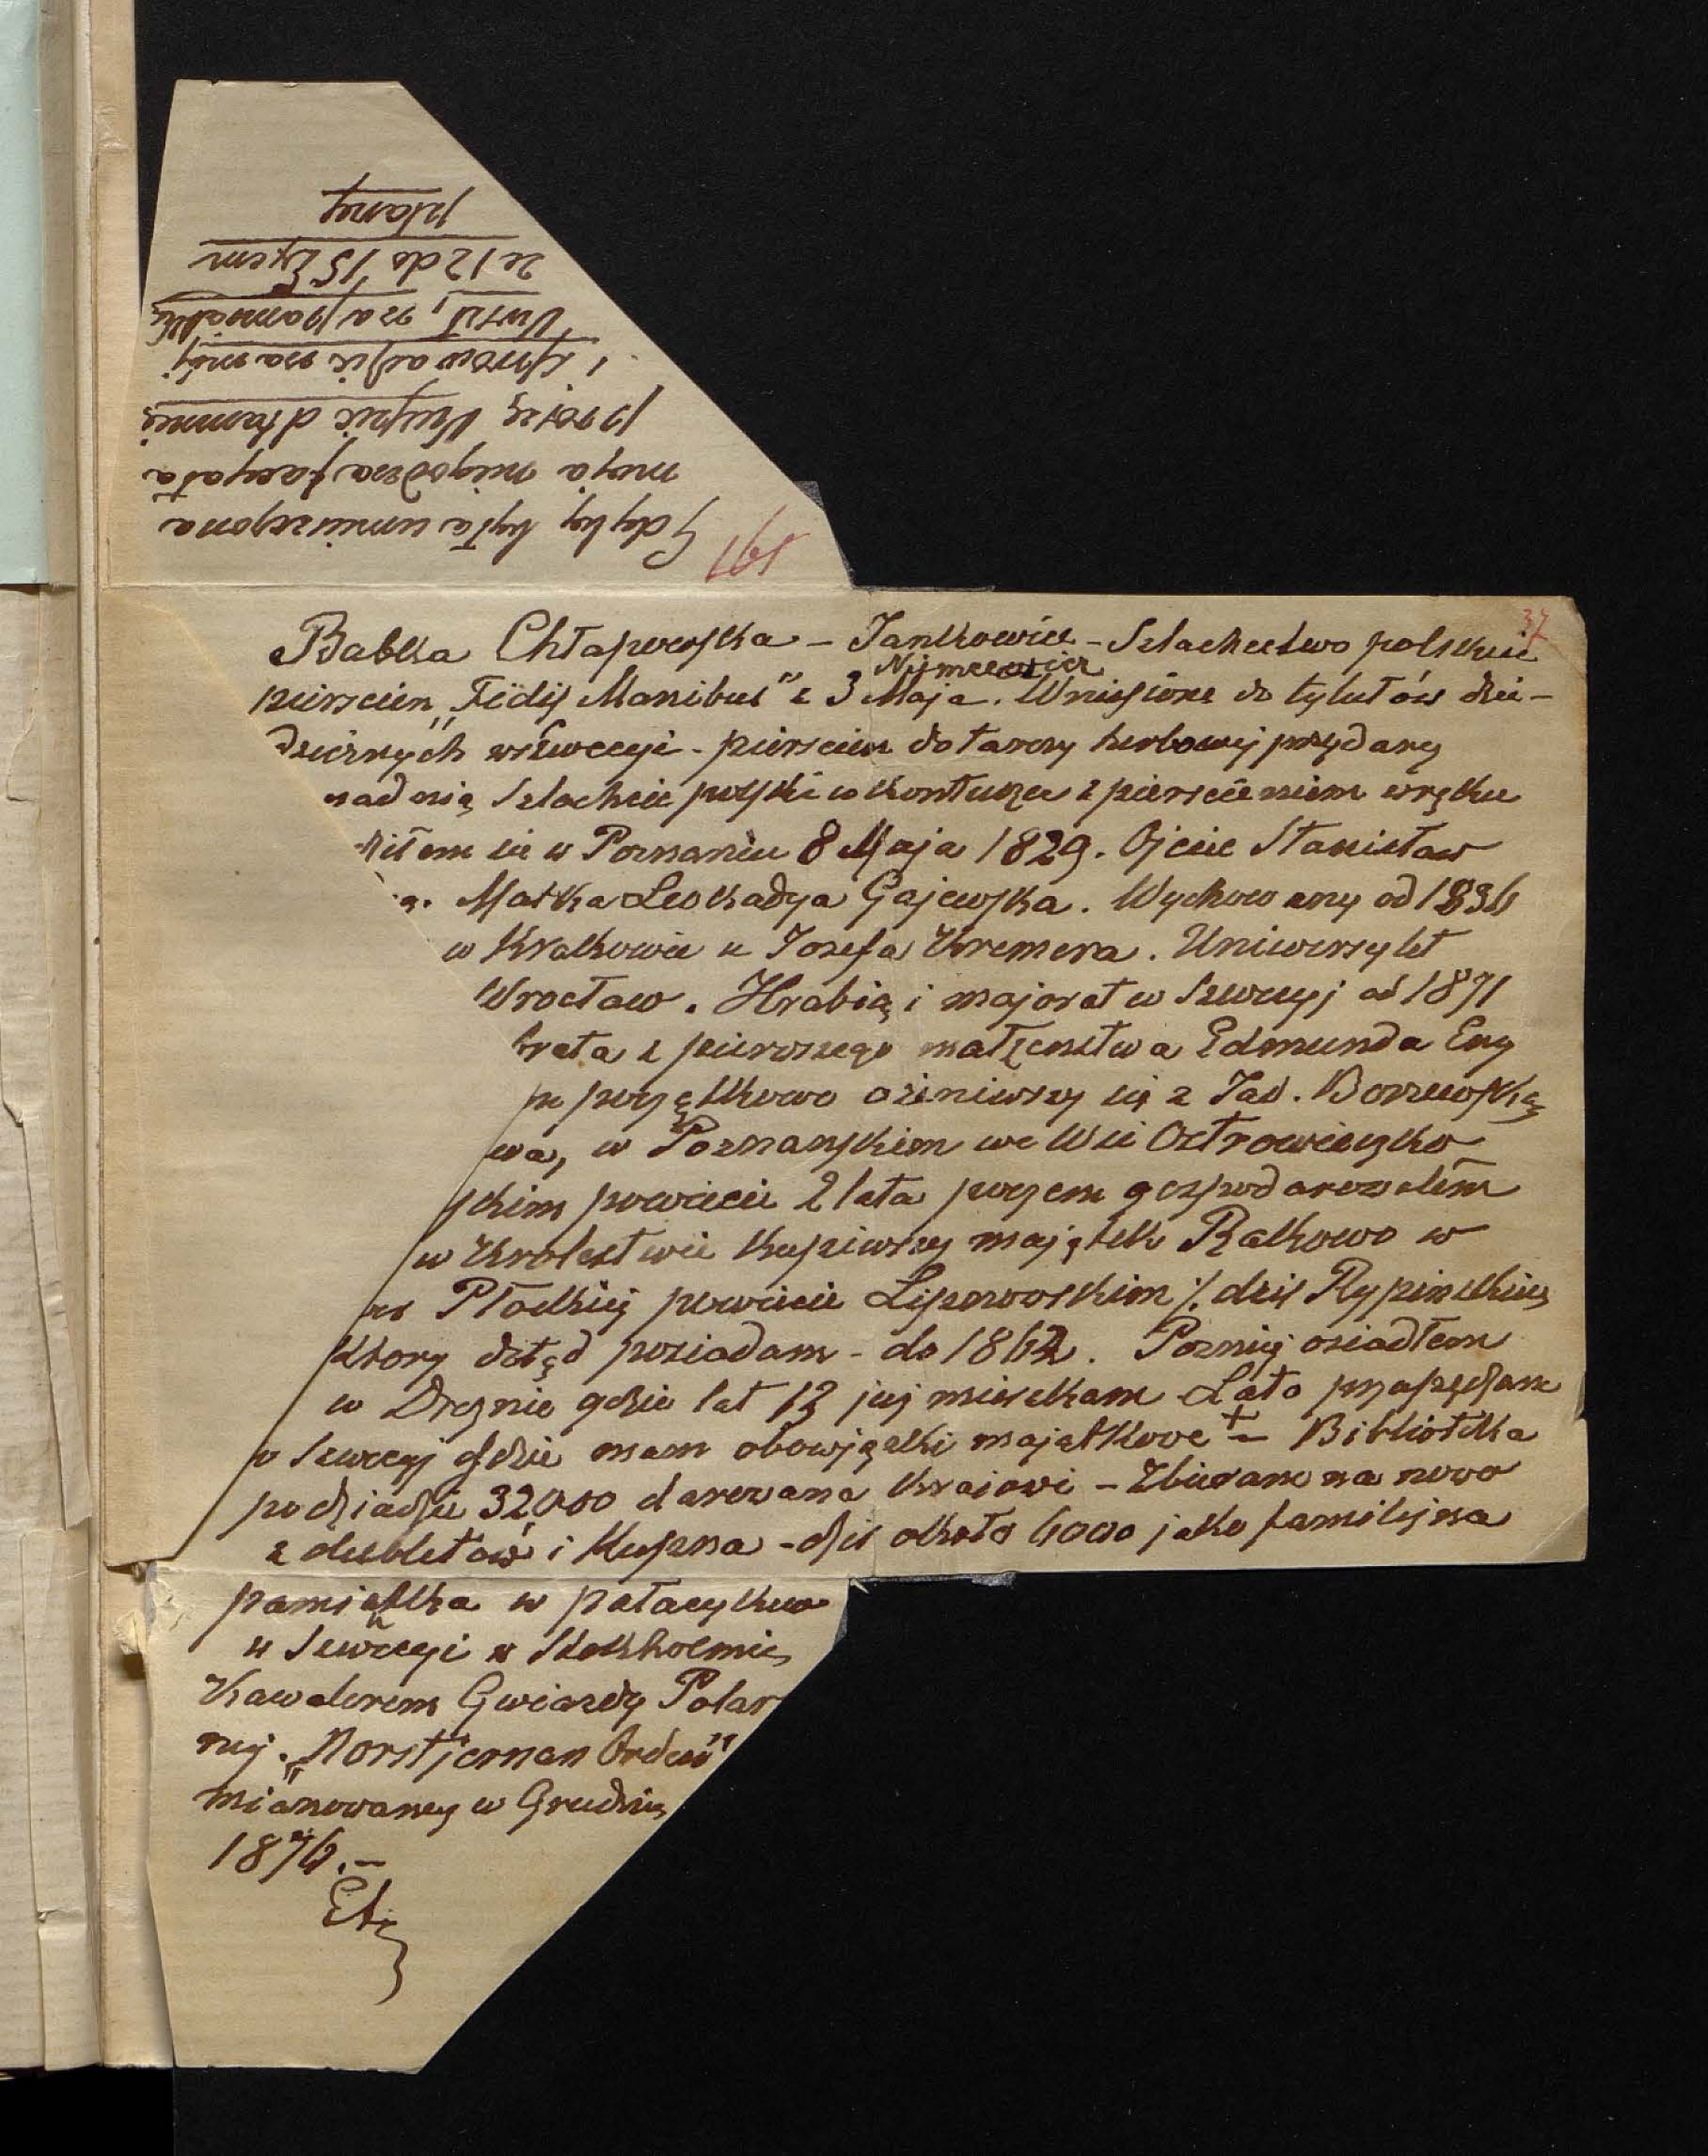 Gdyby była umieszczona
moja niegodna facyata
proszę kupić dla mnie
i sprowadzić na mój
na pamiątkę
ze 12 do 15 Exem
plarzy
191
37
Babka Chłapowska – Jankowice – Szlachectwo polskie
Niemcewicz
pierscien „Fidis Manibus” z 3 Maja. Wniesione do tytułów dzie-
dzicznych w Szwecyi – pierscien do tarczy herbowej przydany
nad nią Szlachcic polski w kontuszu z pierscieniem w ręku
dziłem się w Poznaniu 8 Maja 1829. Ojciec Stanisław
Matka Leokadya Gajewska. Wychowany od 1836
w Krakowie u Jozefa Kremera. Uniwersytet
Wrocław. Hrabią i majorat w Szwecyj od 1871
brata z pierwszego małżenstwa Edmunda Eng
początkowo ożeniwszy się z Jad. Borzewską
wa, w Poznanskim we Wsi Ostrowieczko
skim powiecie 2 lata poczem gospodarowałem
w Krolestwie kupiwszy majątek Rakowo w
Płockiej powiecie Lipnowskim /. dzis Rypinskiem
ktory dotąd posiadam – do 1862. Pozniej osiadłem
w Dreznie gdzie lat 13 już mieszkam Lato przepędzam
w Szwecyj gdzie mam obowiązki majątkowe + – Biblioteka
po dziadzie 32000 darowana Krajowi – Zbierane na nowo
z dubletów i kupna – dziś około 6000 jako familijna
pamiątka w pałacyku
w Szwecyi w Stokholmie
Kawalerem Gwiazdy Polar
nej. „Norstjernan Orden”
mianowany w Grudniu
1876. –